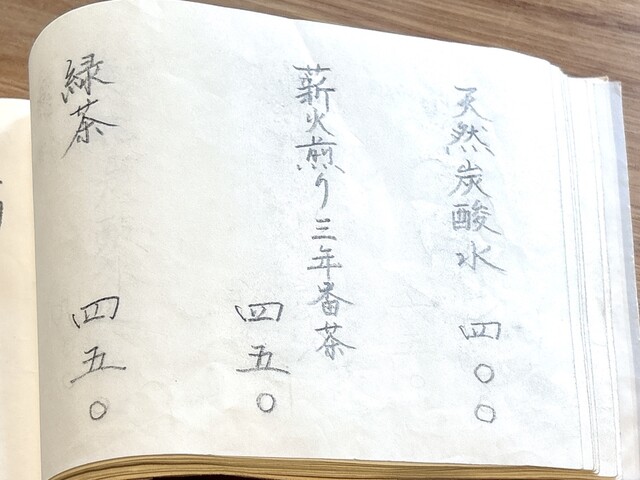 天然炭酸水 四〇〇
薪火煎り三年番茶
四五〇
緑茶 四五〇